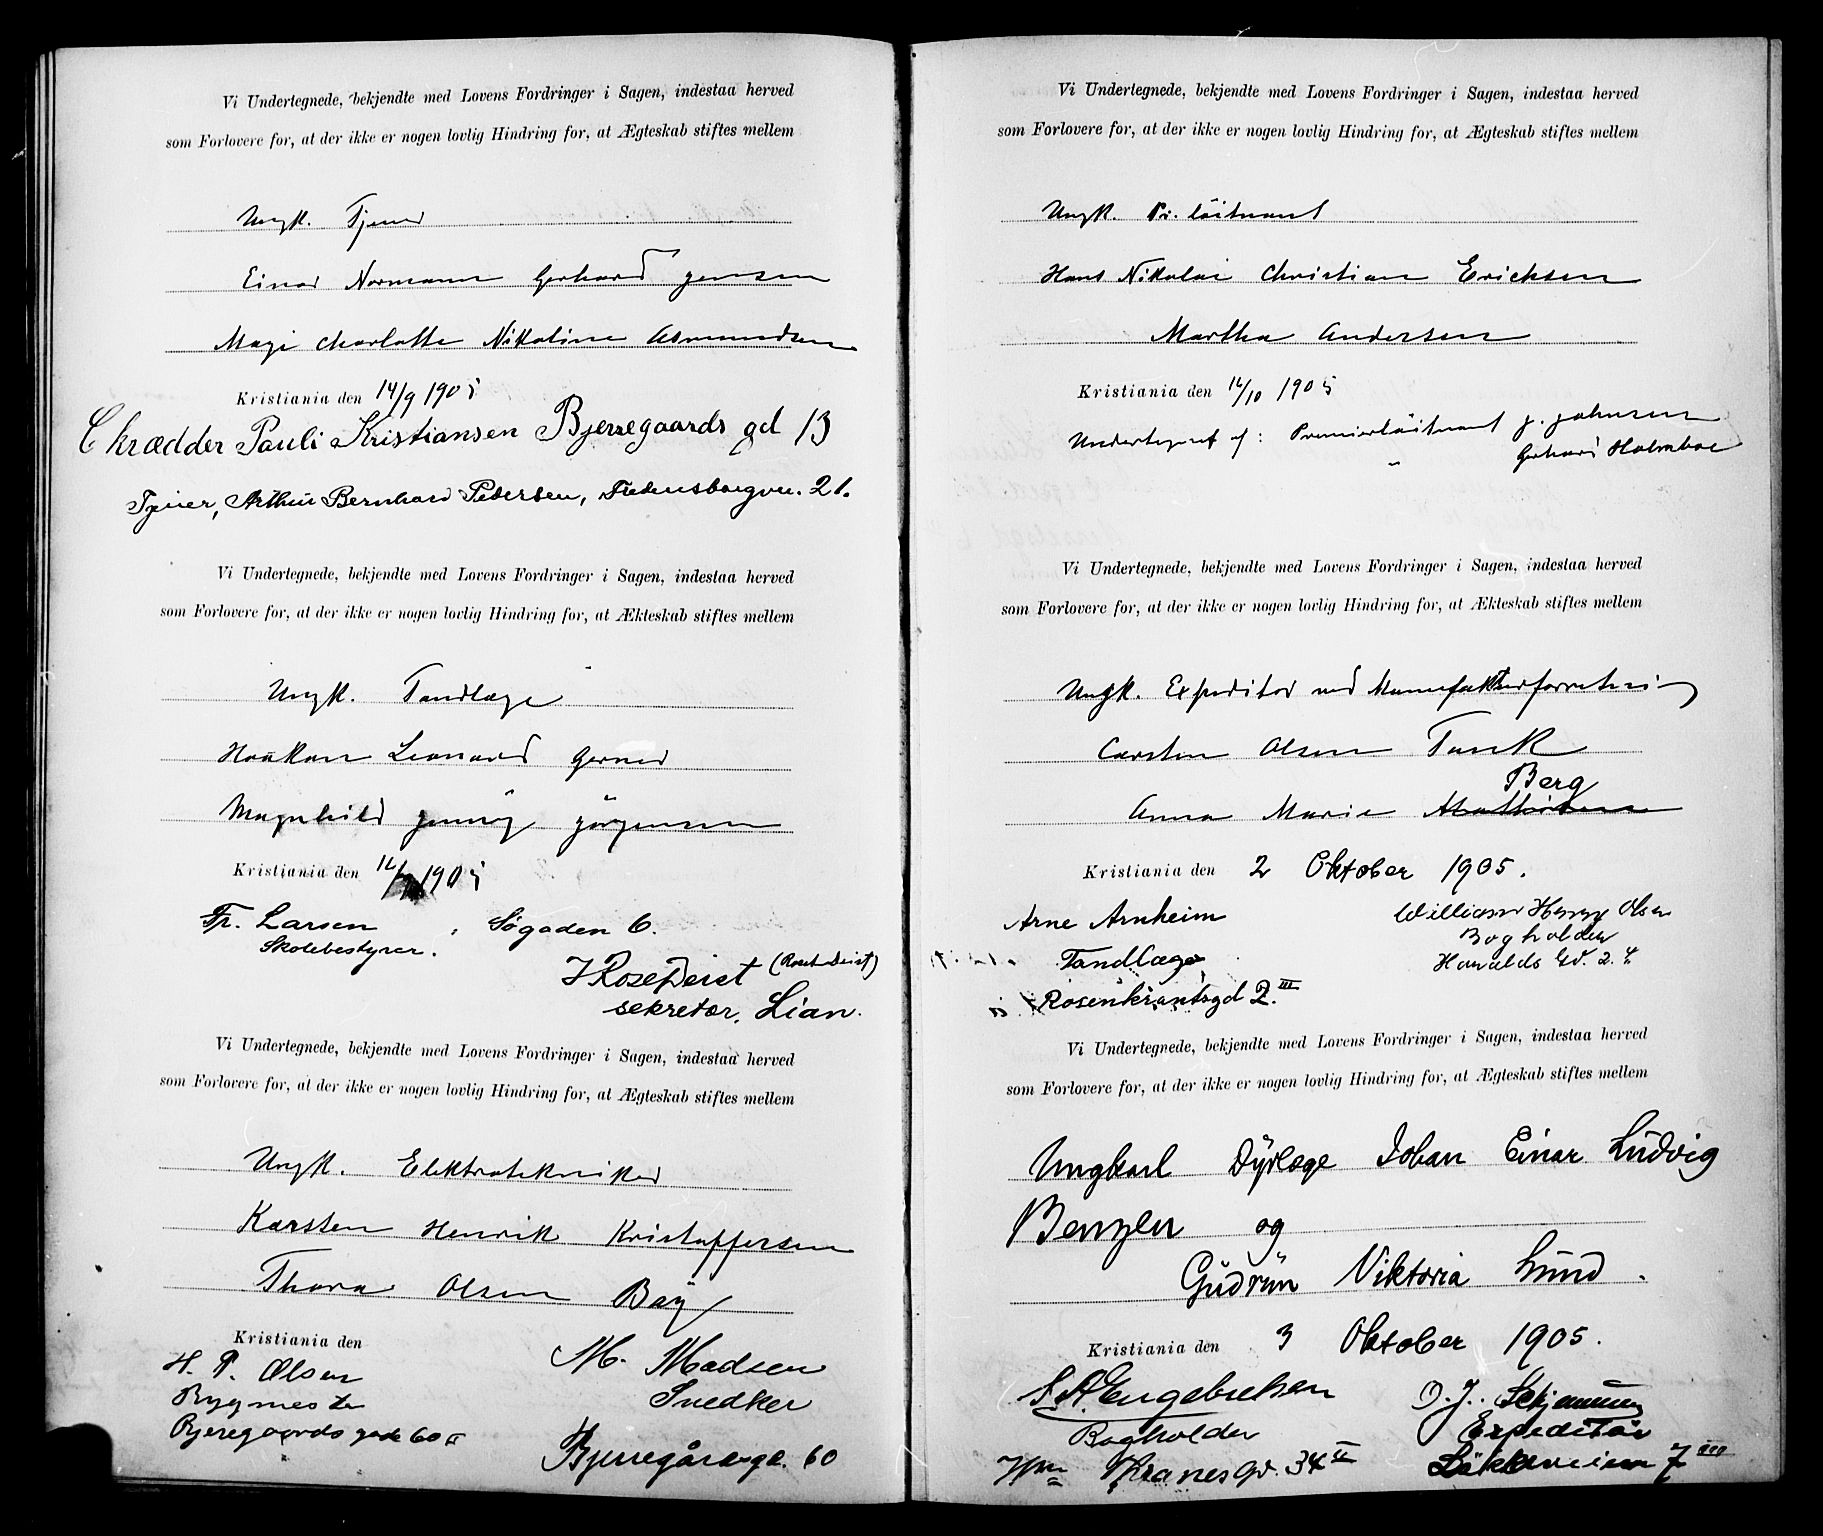 Vi Undertegnede, bekjendte med Lovens Fordringer i Sagen, indestaa herved
som Forlovere for, at der ikke er nogen lovlig Hindring for, at Ægteskab stiftes mellem
Ungk. Tjener
Einar Normann Gerhard Jensen
Magi Charlotte Nikoline Asmundsen
Kristiania den 14/9 1905
Skrædder Pauli Kristiansen Bjerregaards gd 13
Tjener, Arthur Bernhard Pedersen, Fredensborgvn. 21.
Vi Undertegnede, bekjendte med Lovens Fordringer i Sagen, indestaa herved
som Forlovere for, at der ikke er nogen lovlig Hindring for, at Ækteskab stiftes mellem
Ungk. Tandlæge
Haakon Leonard Gerner
Magnhild Jenny Jörgensen
Kristiania den 1905
Fr. Larsen, Søgaden 6.
Skolebestyrer.
(Rosef Deist)
sekretær, Lian.
Vi Undertegnede, bekjendte med Lovens Fordringer i Sagen, indestaa herved
som Forlovere for, at der ikke er nogen lovlig Hindring for, at Ægteskab stiftes mellem
Ungk. Elektrotekniker
Karsten Henrik Kristoffersen
Thora Olsen Bøÿ
Kristiania den
H. P. Olsen
Bygmester
Bjeregaards gade 60a
M. Madsen
Snedker
Bjerregårdsgd. 60
Vi Undertegnede, bekjendte med Lovens Fordringer i Sagen, indestaa herved
som Forlovere for, at der ikke er nogen lovlig Hindring for, at Ægteskab stiftes mellem
Ungk. Pr. löitnant
Hans Nikolai Christian Erichsen
Martha Andersen
Kristiania den 16/10 1905
Undertegnet af: Premierlöitnant J. Johnsen
" Gerhard Holmboe
Vi Undertegnede, bekjendte med Lovens Fordringer i Sagen, indestaa herved
som Forlovere for, at der ikke er nogen lovlig Hindring for, at Ækteskab stiftes mellem
Ungk. Expeditør ved Manufakturforretning
Carsten Olsen Tank
Berg
Anna Marie Mathisen
Kristiania den 2 Oktober 1905.
Arne Arnheim
Tandlæge
Rosenkrantsgd 2.III
William Henry Olsen
Bogholder
Haralds Gd. 2. 4.
Vi Undertegnede, bekjendte med Lovens Fordringer i Sagen, indestaa herved
som Forlovere for, at der ikke er nogen lovlig Hindring for, at Ægteskab stiftes mellem
Ungkarl Dyrlæge Johan Einar Ludvig
Benzen og
Gudrun Viktoria Lund.
Kristiania den 3 Oktober 1905.
S. A. Engebretsen
Bogholder
Kranes Gd. 34 II
O. J.
Expeditør
7 III